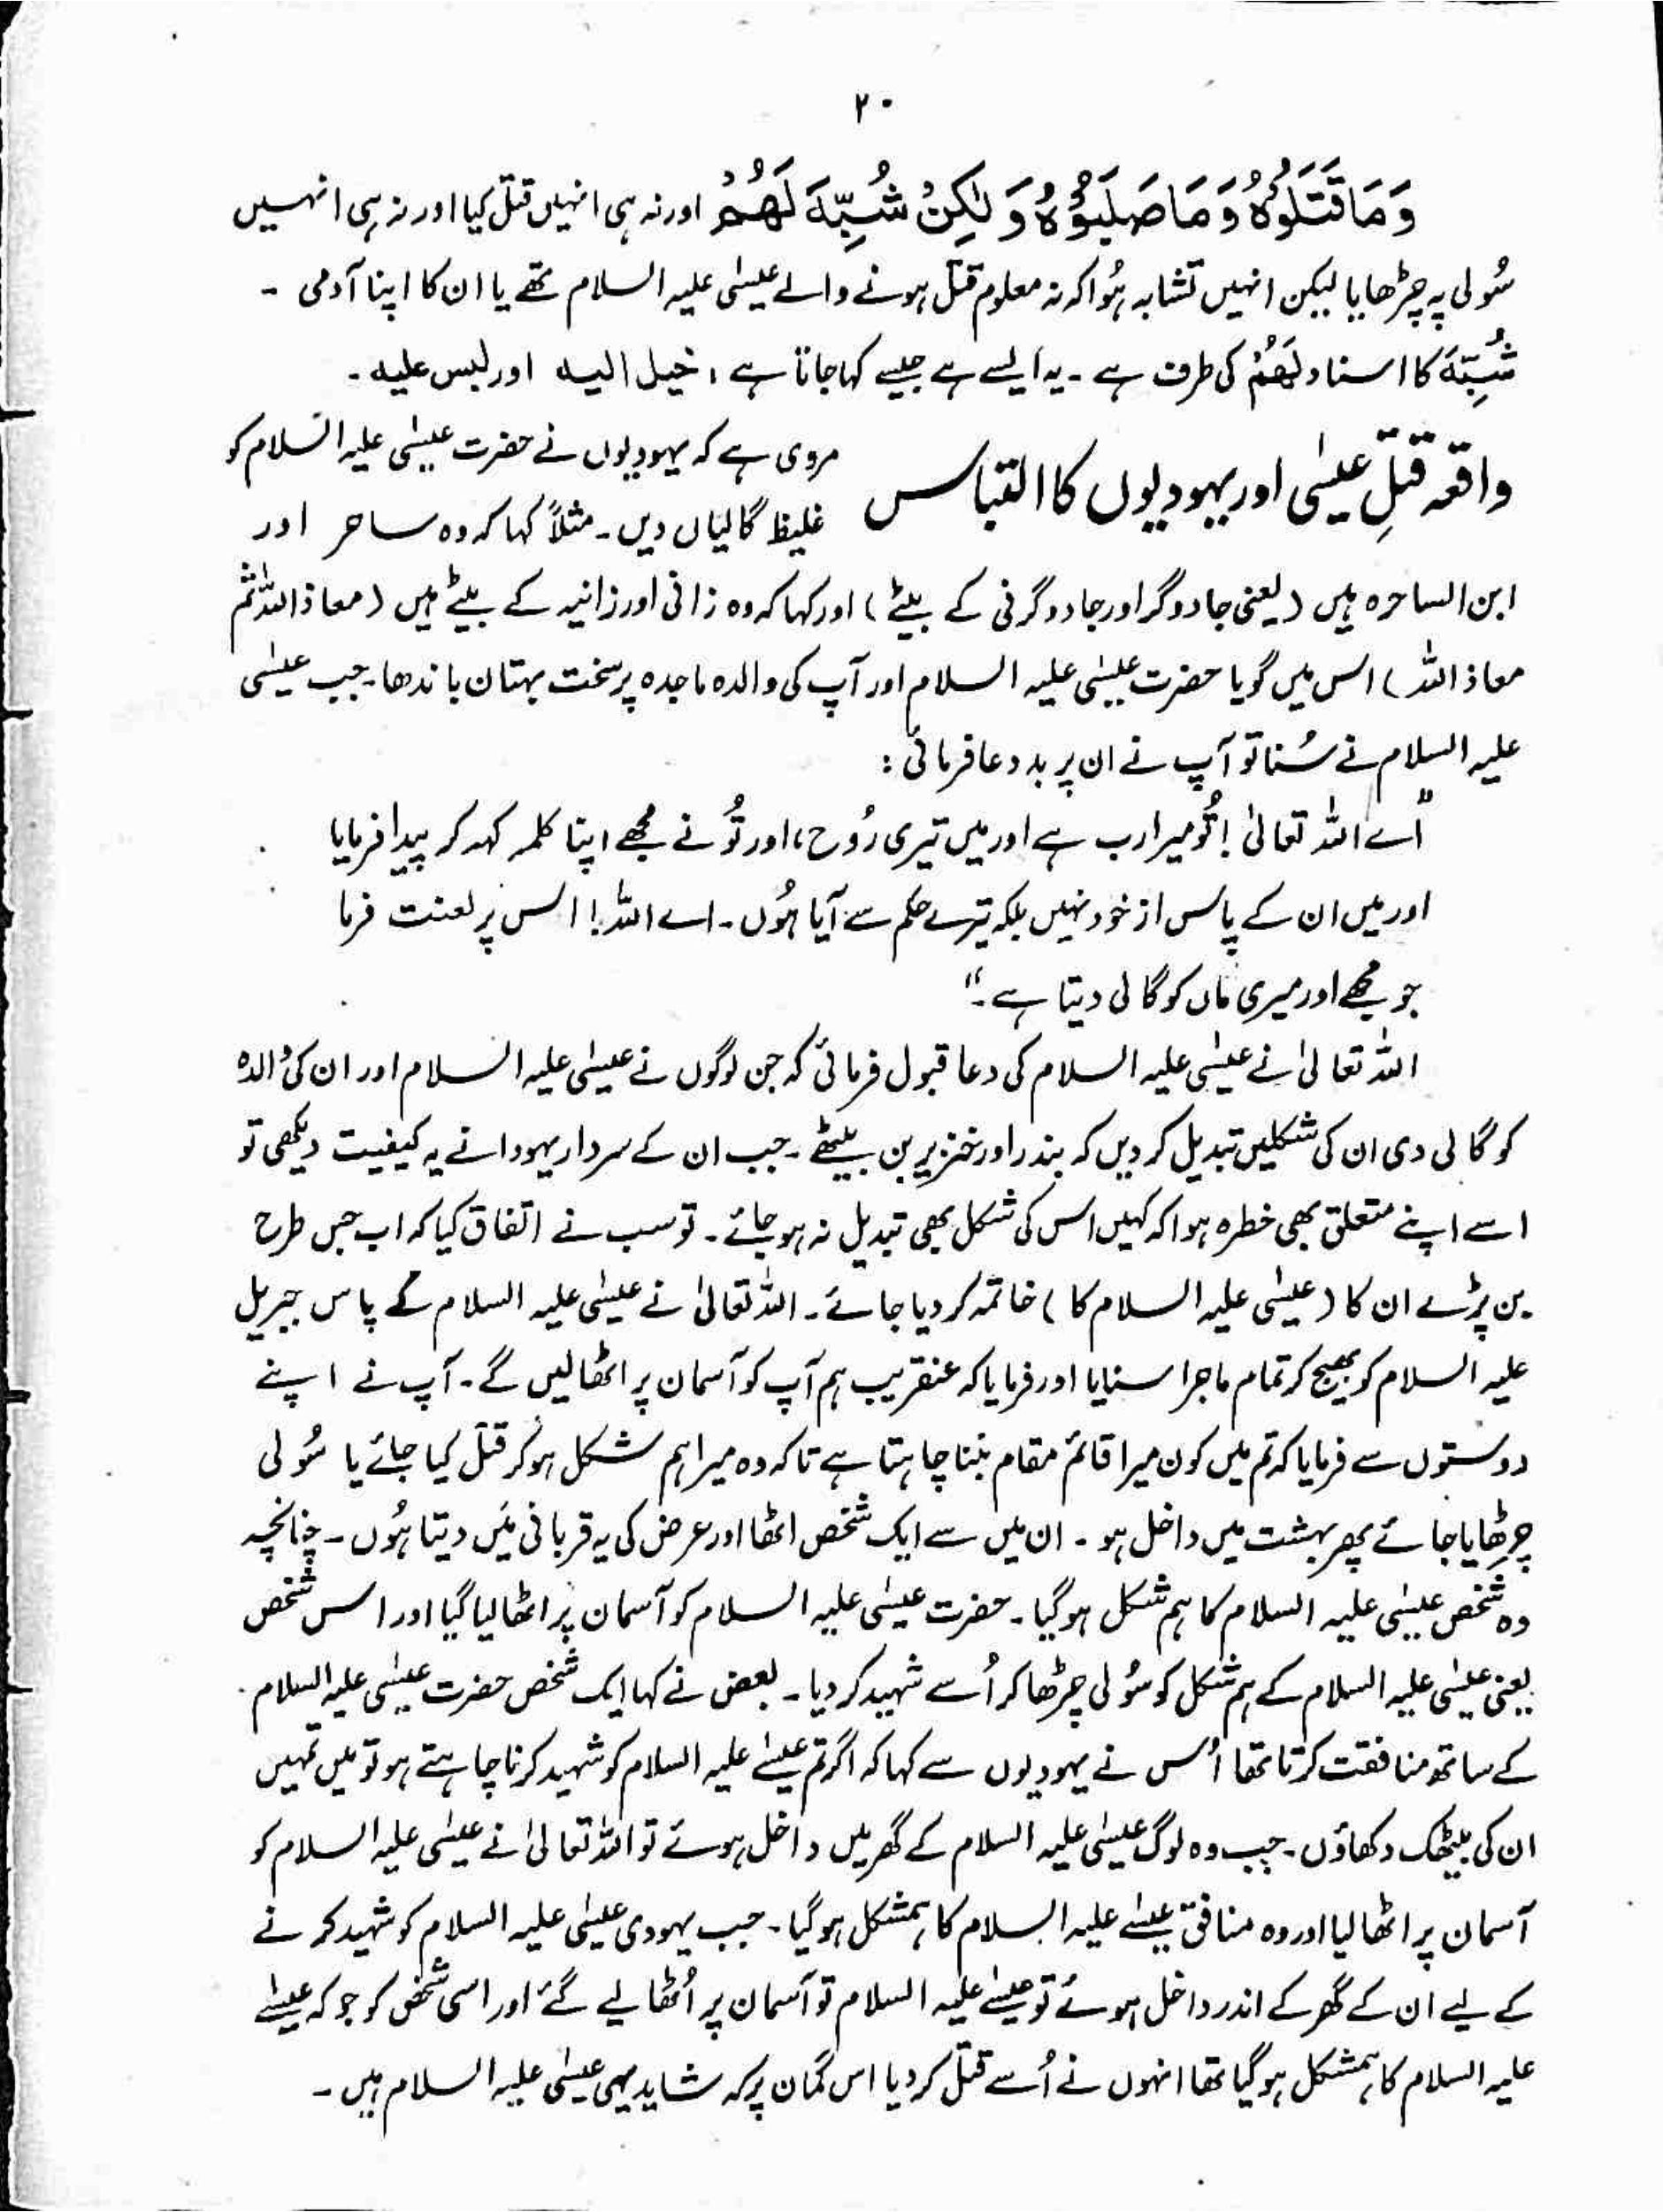 ۲۰
وَمَا قَتَلُوْهُ وَمَا صَلَبُوْهُ وَلٰكِنْ شُبِّهَ لَهُمْ اور نہ ہی انہیں قتل کیا اور نہ ہی انہیں
سُولی پہ چڑھایا لیکن انہیں تشابہ ہُوا کہ نہ معلوم قتل ہونے والے عیسٰی علیہ السلام تھے یا ان کا اپنا آدمی ۔
شُبِّهَ کا اسناد لَهُمْ کی طرف ہے ۔ یہ ایسے ہے جیسے کہا جاتا ہے ، خیل الیہ اور لبس علیہ ۔
واقعہ قتلِ عیسٰی اور یہودیوں کا التباس
مروی ہے کہ یہودیوں نے حضرت عیسٰی علیہ السلام کو
غلیظ گالیاں دیں ۔ مثلاً کہا کہ وہ ساحر اور
ابن الساحرہ ہیں (یعنی جادوگر اور جادوگرنی کے بیٹے) اور کہا کہ وہ زانی اور زانیہ کے بیٹے ہیں (معاذ اللہ ثم
معاذ اللہ) اس میں گویا حضرت عیسٰی علیہ السلام اور آپ کی والدہ ماجدہ پر سخت بہتان باندھا۔ جب عیسٰی
علیہ السلام نے سُنا تو آپ نے ان پر بد دعا فرمائی :
”اے اللہ تعالیٰ! تُو میرا رب ہے اور میں تیری رُوح ، اور تُو نے مجھے اپنا کلمہ کہہ کر پیدا فرمایا
اور میں ان کے پاس از خود نہیں بلکہ تیرے حکم سے آیا ہُوں ۔ اے اللہ! اس پر لعنت فرما
جو مجھے اور میری ماں کو گالی دیتا ہے ۔“
اللہ تعالیٰ نے عیسٰی علیہ السلام کی دعا قبول فرمائی کہ جن لوگوں نے عیسٰی علیہ السلام اور ان کی والدہ
کو گالی دی ان کی شکلیں تبدیل کر دیں کہ بندر اور خنزیر بن بیٹھے ۔ جب ان کے سردار یہودا نے یہ کیفیت دیکھی تو
اسے اپنے متعلق بھی خطرہ ہوا کہ کہیں اس کی شکل بھی تبدیل نہ ہو جائے ۔ تو سب نے اتفاق کیا کہ اب جس طرح
بن پڑے ان کا (عیسٰی علیہ السلام کا) خاتمہ کر دیا جائے ۔ اللہ تعالیٰ نے عیسٰی علیہ السلام کے پاس جبریل
علیہ السلام کو بھیج کر تمام ماجرا سنایا اور فرمایا کہ عنقریب ہم آپ کو آسمان پر اٹھا لیں گے ۔ آپ نے اپنے
دوستوں سے فرمایا کہ تم میں کون میرا قائم مقام بننا چاہتا ہے تاکہ وہ میرا ہم شکل ہو کر قتل کیا جائے یا سُولی
چڑھایا جائے پھر بہشت میں داخل ہو ۔ ان میں سے ایک شخص اٹھا اور عرض کی یہ قربانی مَیں دیتا ہُوں ۔ چنانچہ
وہ شخص عیسٰی علیہ السلام کا ہم شکل ہو گیا ۔ حضرت عیسٰی علیہ السلام کو آسمان پر اٹھا لیا گیا اور اس شخص
یعنی عیسٰی علیہ السلام کے ہم شکل کو سُولی چڑھا کر اُسے شہید کر دیا ۔ بعض نے کہا ایک شخص حضرت عیسٰی علیہ السلام
کے ساتھ منافقت کرتا تھا اُس نے یہودیوں سے کہا کہ اگر تم عیسٰے علیہ السلام کو شہید کرنا چاہتے ہو تو میں تمہیں
ان کی بیٹھک دکھاؤں ۔ جب وہ لوگ عیسٰی علیہ السلام کے گھر میں داخل ہوئے تو اللہ تعالیٰ نے عیسٰی علیہ السلام کو
آسمان پر اٹھا لیا اور وہ منافق عیسٰے علیہ السلام کا ہمشکل ہو گیا ۔ جب یہودی عیسٰی علیہ السلام کو شہید کرنے
کے لیے ان کے گھر کے اندر داخل ہوئے تو عیسٰے علیہ السلام تو آسمان پر اُٹھا لیے گئے اور اسی شخص کو جو کہ عیسٰے
علیہ السلام کا ہمشکل ہو گیا تھا انہوں نے اُسے قتل کر دیا اس گمان پر کہ شاید یہی عیسٰی علیہ السلام ہیں ۔